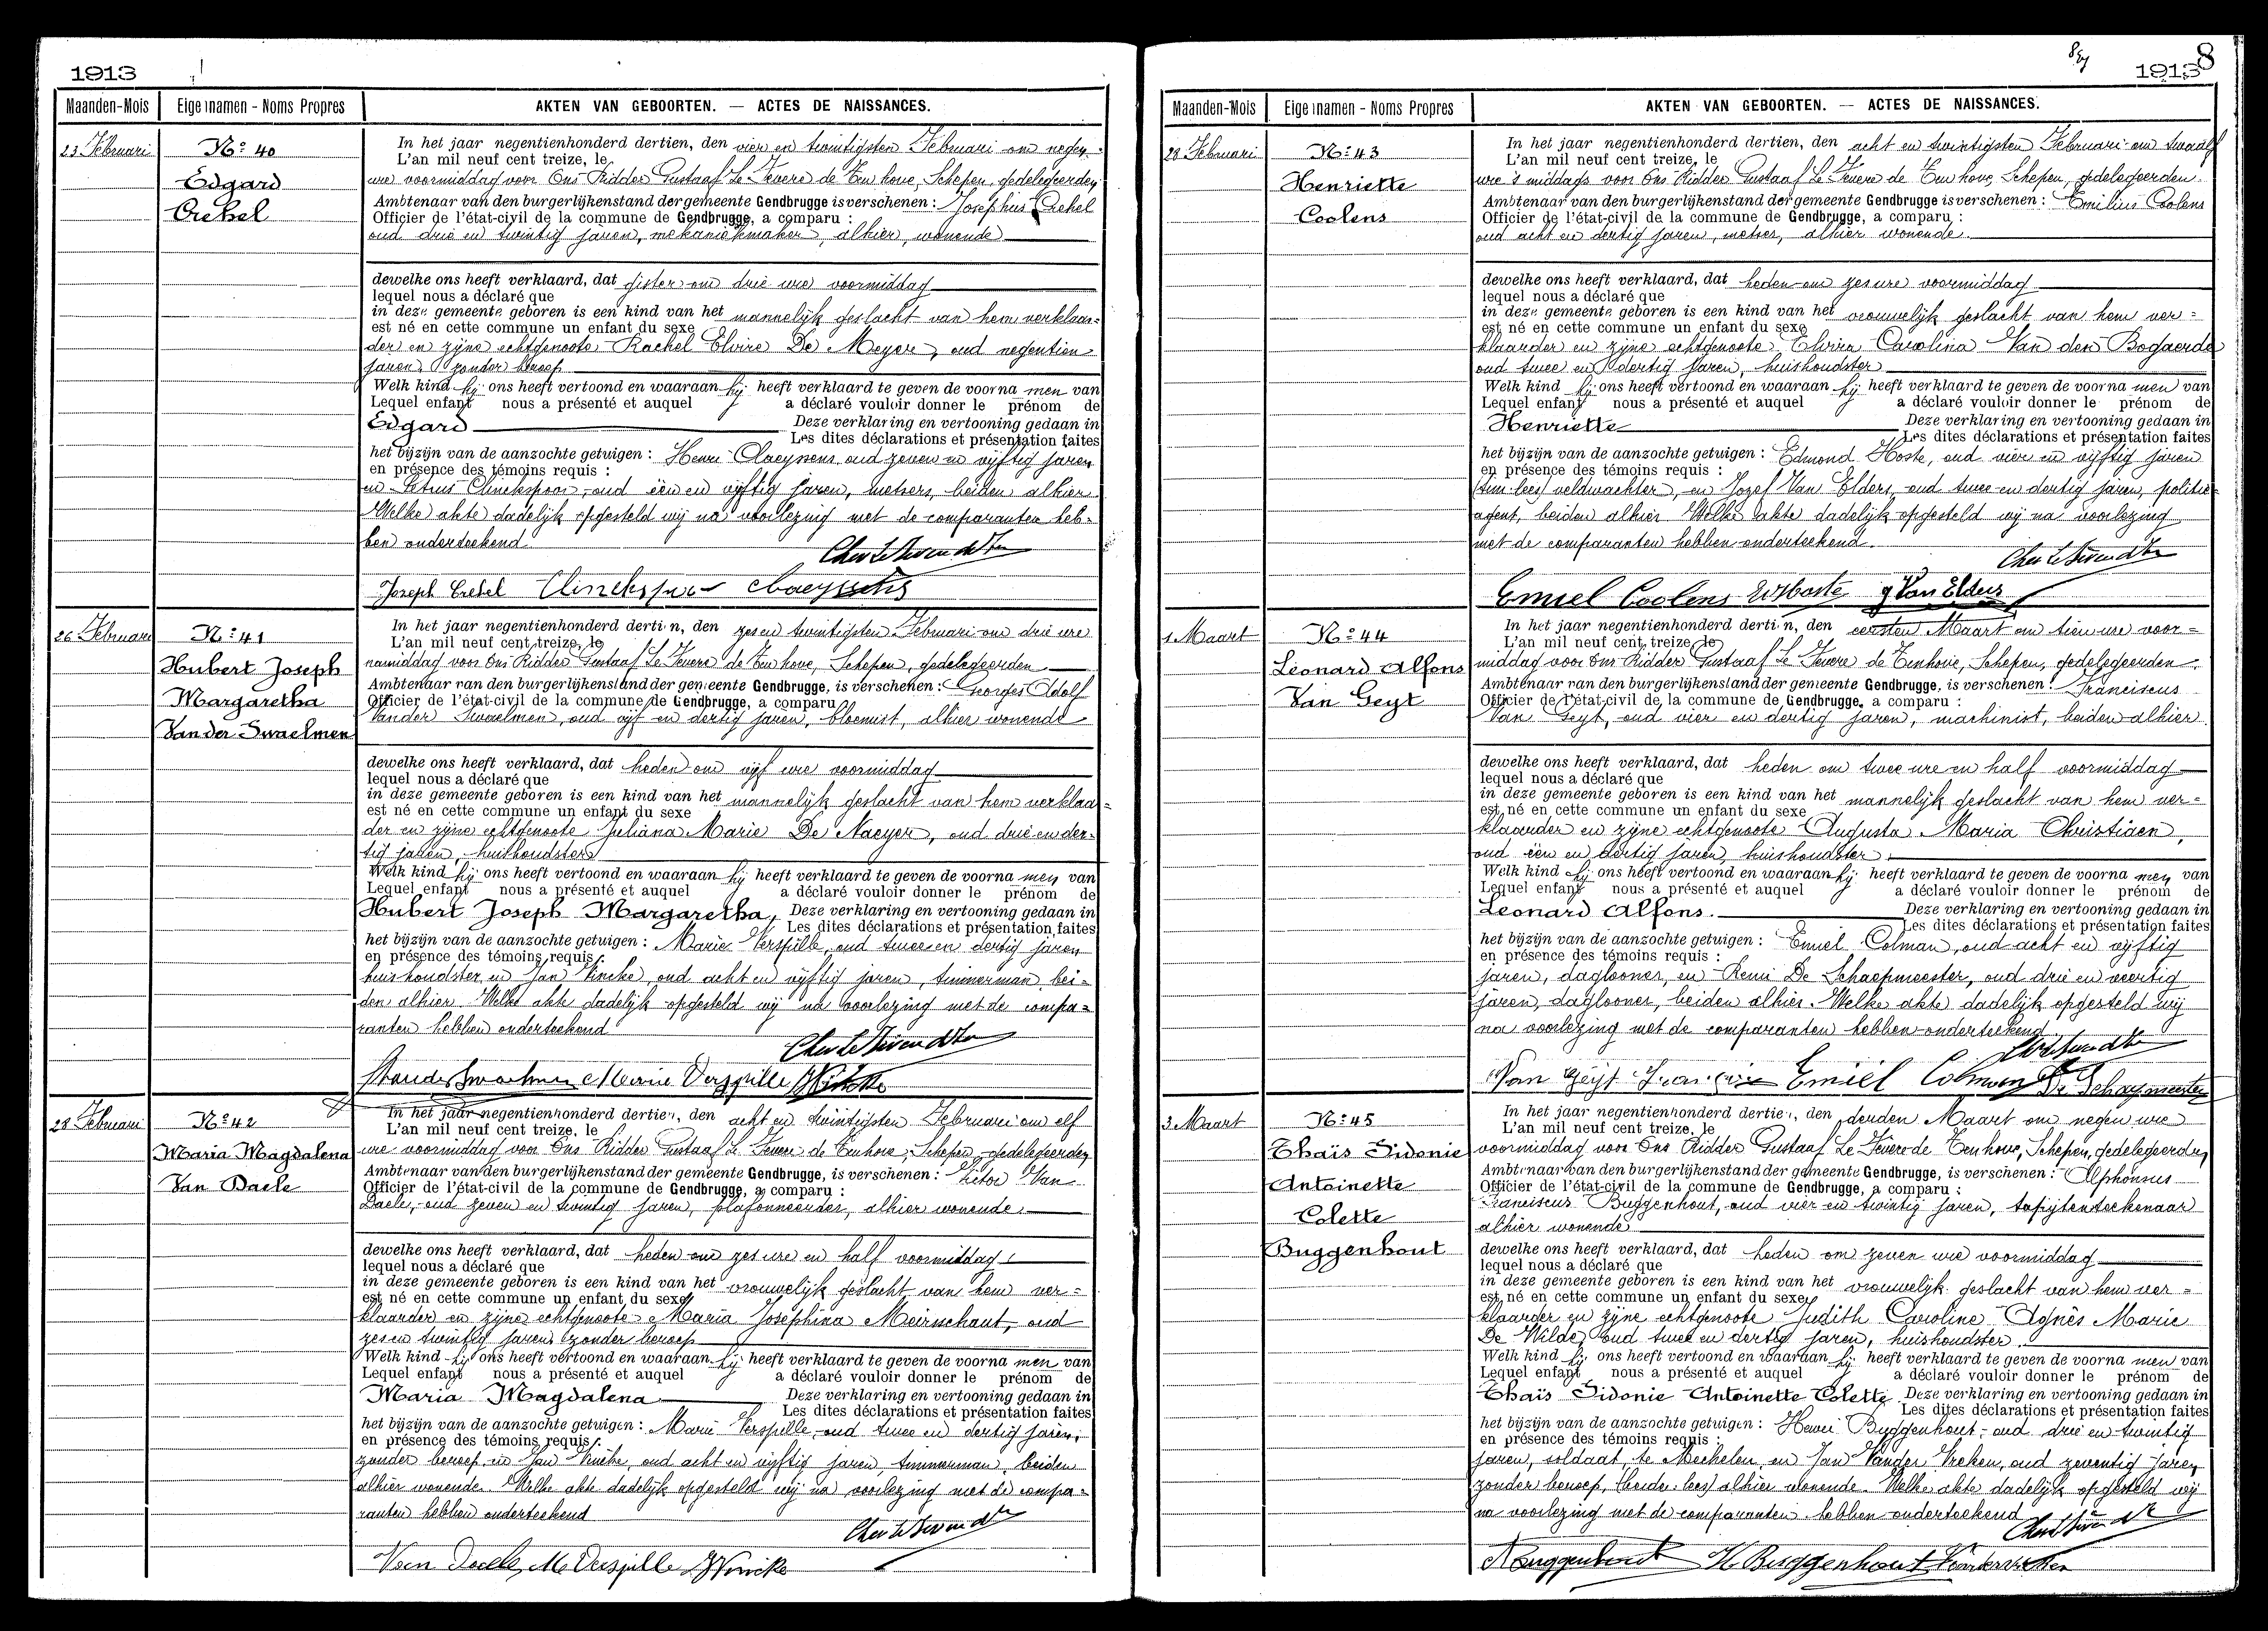 1913
Maanden-Mois Eigennamen - Noms Propres AKTEN VAN GEBOORTEN. — ACTES DE NAISSANCES.
23 Februari
No 40
Edgard
Crekel
In het jaar negentienhonderd dertien, den vier en twintigsten Februari om negen
L'an mil neuf cent treize, le
ure voormiddag voor Ons Ridder Gustaaf Le Fevere de Ten hove, Schepen, gedelegeerden
Ambtenaar van den burgerlijkenstand der gemeente Gendbrugge is verschenen : Josephus Crekel
Officier de l'état-civil de la commune de Gendbrugge, a comparu :
oud drie en twintig jaren, mekaniekmaker, alhier wonende
dewelke ons heeft verklaard, dat gister om drie ure voormiddag
lequel nous a déclaré que
in deze gemeente geboren is een kind van het mannelijk geslacht van hem verklaar-
est né en cette commune un enfant du sexe
der en zijne echtgenoote Rachel Elvire De Meyer, oud negentien
jaren, zonder beroep
Welk kind hij ons heeft vertoond en waaraan hij heeft verklaard te geven de voorna men van
Lequel enfant nous a présenté et auquel a déclaré vouloir donner le prénom de
Edgard Deze verklaring en vertooning gedaan in
Les dites déclarations et présentation faites
het bijzijn van de aanzochte getuigen : Henri Claeyssens oud zeven en vijftig jaren
en présence des témoins requis :
en Petrus Clinckspoor, oud een en vijftig jaren, metsers, beiden alhier
Welke akte dadelijk opgesteld wij na voorlezing met de comparanten heb-
ben onderteekend
Joseph Crekel Clinckspoor Claeyssens
26 Februari
No 41
Hubert Joseph
Margaretha
Van der Swaelmen
In het jaar negentienhonderd dertien, den zes en twintigsten Februari om drie ure
L'an mil neuf cent treize, le
namiddag voor Ons Ridder Gustaaf Le Fevere de Ten hove, Schepen, gedelegeerden
Ambtenaar van den burgerlijkenstand der gemeente Gendbrugge, is verschenen : Georges Adolf
Officier de l'état-civil de la commune de Gendbrugge, a comparu
Vander Swaelmen, oud vijf en dertig jaren, bloemist, alhier wonende
dewelke ons heeft verklaard, dat heden om vijf ure voormiddag
lequel nous a déclaré que
in deze gemeente geboren is een kind van het mannelijk geslacht van hem verklaar-
est né en cette commune un enfant du sexe
der en zijne echtgenoote Juliana Marie De Naeyer, oud drie en der-
tig jaren, huishoudster
Welk kind hij ons heeft vertoond en waaraan hij heeft verklaard te geven de voorna men van
Lequel enfant nous a présenté et auquel a déclaré vouloir donner le prénom de
Hubert Joseph Margaretha, Deze verklaring en vertooning gedaan in
Les dites déclarations et présentation faites
het bijzijn van de aanzochte getuigen : Marie Verspille, oud twee en dertig jaren
en présence des témoins requis :
huishoudster en Jan Vincke, oud acht en vijftig jaren, timmerman, bei-
den alhier. Welke akte dadelijk opgesteld wij na voorlezing met de compa-
ranten hebben onderteekend
Marie Verspille
28 Februari
No 42
Maria Magdalena
Van Daele
In het jaar negentienhonderd dertien, den acht en twintigsten Februari om elf
L'an mil neuf cent treize, le
ure voormiddag voor Ons Ridder Gustaaf Le Fevere de Ten hove, Schepen, gedelegeerden
Ambtenaar van den burgerlijkenstand der gemeente Gendbrugge, is verschenen : Victor Van
Officier de l'état-civil de la commune de Gendbrugge, a comparu :
Daele, oud zeven en twintig jaren, plafonneerder, alhier wonende
dewelke ons heeft verklaard, dat heden om zes ure en half voormiddag
lequel nous a déclaré que
in deze gemeente geboren is een kind van het vrouwelijk geslacht van hem ver-
est né en cette commune un enfant du sexe
klaarder en zijne echtgenoote Maria Josephina Meirschaut, oud
zes en twintig jaren, zonder beroep
Welk kind hij ons heeft vertoond en waaraan hij heeft verklaard te geven de voorna men van
Lequel enfant nous a présenté et auquel a déclaré vouloir donner le prénom de
Maria Magdalena Deze verklaring en vertooning gedaan in
Les dites déclarations et présentation faites
het bijzijn van de aanzochte getuigen : Marie Verspille, oud twee en dertig jaren,
en présence des témoins requis :
zonder beroep en Jan Vincke, oud acht en vijftig jaren, timmerman, beiden
alhier wonende. Welke akte dadelijk opgesteld wij na voorlezing met de compa-
ranten hebben onderteekend
Van Daele, M. Verspille J Vincke
1913 8
Maanden-Mois Eigennamen - Noms Propres AKTEN VAN GEBOORTEN. — ACTES DE NAISSANCES.
28 Februari
No 43
Henriette
Coolens
In het jaar negentienhonderd dertien, den acht en twintigsten Februari om twaalf
L'an mil neuf cent treize, le
ure 's middags voor Ons Ridder Gustaaf Le Fevere de Ten hove, Schepen, gedelegeerden
Ambtenaar van den burgerlijkenstand der gemeente Gendbrugge is verschenen : Emilius Coolens
Officier de l'état-civil de la commune de Gendbrugge, a comparu :
oud acht en dertig jaren, metser, alhier wonende.
dewelke ons heeft verklaard, dat heden om zes ure voormiddag
lequel nous a déclaré que
in deze gemeente geboren is een kind van het vrouwelijk geslacht van hem ver-
est né en cette commune un enfant du sexe
klaarder en zijne echtgenoote Elvira Carolina Van den Bogaerde
oud twee en dertig jaren, huishoudster
Welk kind hij ons heeft vertoond en waaraan hij heeft verklaard te geven de voorna men van
Lequel enfant nous a présenté et auquel a déclaré vouloir donner le prénom de
Henriette Deze verklaring en vertooning gedaan in
Les dites déclarations et présentation faites
het bijzijn van de aanzochte getuigen : Edmond Hoste, oud vier en vijftig jaren
en présence des témoins requis :
veldwachter, en Jozef Van Elders, oud twee en dertig jaren, politie-
agent, beiden alhier Welke akte dadelijk opgesteld wij na voorlezing
met de comparanten hebben onderteekend.
Emiel Coolens Ed Hoste J Van Elders
1 Maart
No 44
Léonard Alfons
Van Geyt
In het jaar negentienhonderd dertien, den eersten Maart om tien ure voor-
L'an mil neuf cent treize, le
middag voor Ons Ridder Gustaaf Le Fevere de Tenhove, Schepen, gedelegeerden
Ambtenaar van den burgerlijkenstand der gemeente Gendbrugge, is verschenen : Franciscus
Officier de l'état-civil de la commune de Gendbrugge, a comparu :
Van Geyt, oud vier en dertig jaren, machinist, beiden alhier
dewelke ons heeft verklaard, dat heden om twee ure en half voormiddag
lequel nous a déclaré que
in deze gemeente geboren is een kind van het mannelijk geslacht van hem ver-
est né en cette commune un enfant du sexe
klaarder en zijne echtgenoote Augusta Maria Christiaen,
oud een en dertig jaren, huishoudster.
Welk kind hij ons heeft vertoond en waaraan hij heeft verklaard te geven de voorna men van
Lequel enfant nous a présenté et auquel a déclaré vouloir donner le prénom de
Léonard Alfons. Deze verklaring en vertooning gedaan in
Les dites déclarations et présentation faites
het bijzijn van de aanzochte getuigen : Emiel Colman, oud acht en vijftig
en présence des témoins requis :
jaren, daglooner, en Remi De Schaepmeester, oud drie en veertig
jaren, daglooner, beiden alhier. Welke akte dadelijk opgesteld wij
na voorlezing met de comparanten hebben onderteekend
Van Geyt Emiel Colman De Schaepmeester
3 Maart
No 45
Thaïs Sidonie
Antoinette
Colette
Buggenhout
In het jaar negentienhonderd dertien, den derden Maart om negen ure
L'an mil neuf cent treize, le
voormiddag voor Ons Ridder Gustaaf Le Fevere de Ten hove, Schepen, gedelegeerden
Ambtenaar van den burgerlijkenstand der gemeente Gendbrugge, is verschenen : Alphonsus
Officier de l'état-civil de la commune de Gendbrugge, a comparu :
Franciscus Buggenhout, oud vier en twintig jaren, tapijtenteekenaar
alhier wonende
dewelke ons heeft verklaard, dat heden om zeven ure voormiddag
lequel nous a déclaré que
in deze gemeente geboren is een kind van het vrouwelijk geslacht van hem ver-
est né en cette commune un enfant du sexe
klaarder en zijne echtgenoote Judith Caroline Agnès Marie
De Wilde, oud twee en dertig jaren, huishoudster.
Welk kind hij ons heeft vertoond en waaraan hij heeft verklaard te geven de voorna men van
Lequel enfant nous a présenté et auquel a déclaré vouloir donner le prénom de
Thaïs Sidonie Antoinette Colette Deze verklaring en vertooning gedaan in
Les dites déclarations et présentation faites
het bijzijn van de aanzochte getuigen : Henri Buggenhout, oud drie en twintig
en présence des témoins requis :
jaren, soldaat, te Mechelen, en Jan Vander Vreken, oud zeventig jaren
zonder beroep, (beide: lees) alhier wonende. Welke akte dadelijk opgesteld wij
na voorlezing met de comparanten hebben onderteekend
A Buggenhout H. Buggenhout